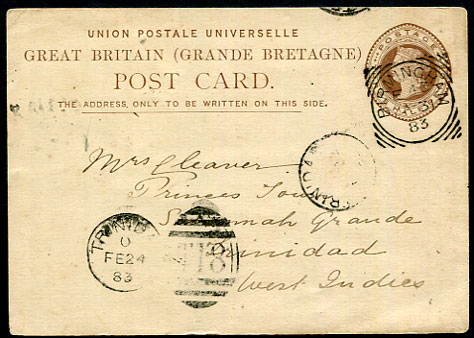 UNION POSTALE UNIVERSELLE
GREAT BRITAIN (GRANDE BRETAGNE)
POST CARD.
THE ADDRESS, ONLY TO BE WRITTEN ON THIS SIDE.
POSTAGE
HALF
BIRMINGHAM
83
Mrs Cleaver
Princes Town
Savannah Grande
Trinidad
West Indies
TRINID
O
FE 24
83
TRINIDAD